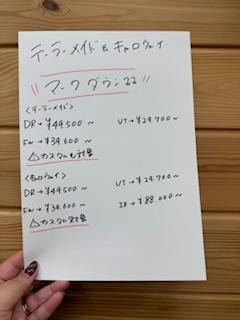 テーラーメイド & キャロウェイ
"マークダウン品"
<テーラーメイド>
DR→¥49.500～ UT→¥29.700～
FW→¥39.600～
△カスタムも対象
<キャロウェイ>
DR→¥49.500～ UT→¥29.700～
FW→¥39.600～ IR→¥88.000～
△カスタム対象